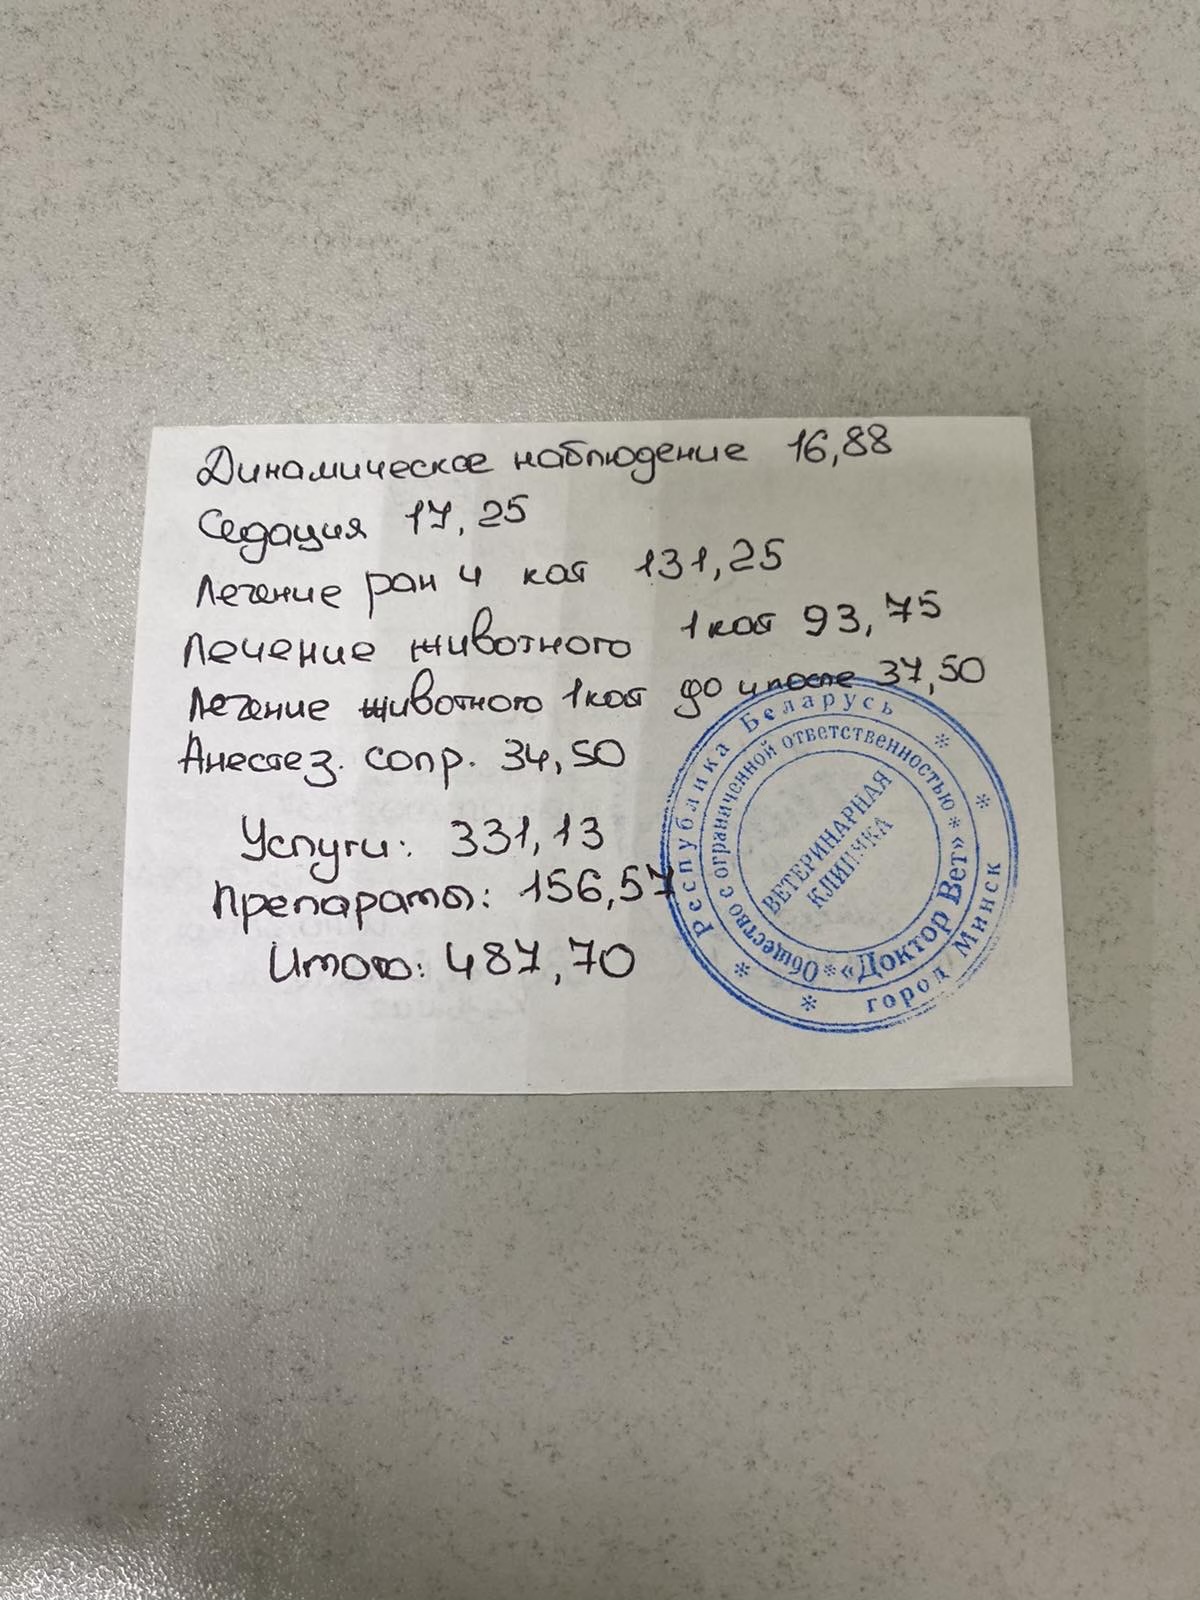 Динамическое наблюдение 16,88
Седация 17,25
Лечение ран 4 кат 131,25
Лечение животного 1 кат 93,75
Лечение животного 1 кат до и после 37,50
Анестез. сопр. 34,50
Услуги: 331,13
Препараты: 156,57
Итого: 487,70
Республика Беларусь
* город Минск *
Общество с ограниченной ответственностью
* «Доктор Вет» *
ВЕТЕРИНАРНАЯ
КЛИНИКА